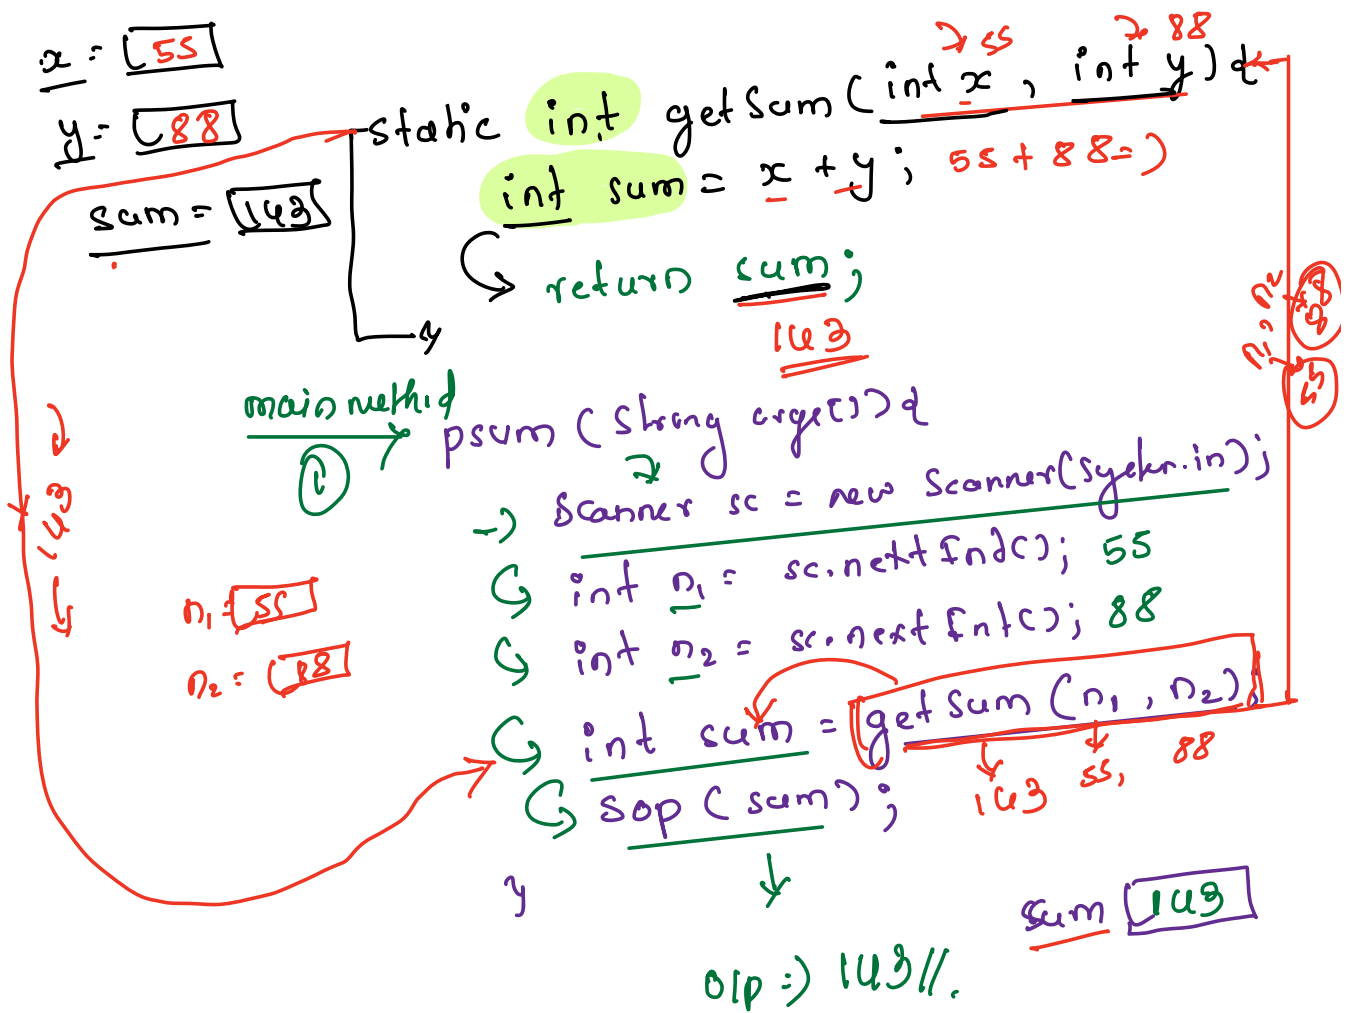 x = 55
y = 88
sum = 143
55 88
static int getSum (int x, int y) {
int sum = x + y; 55 + 88 =)
return sum;
143
}
n1, n2
55 88
main method
1
psvm (String args[]) {
Scanner sc = new Scanner(System.in);
143
int n1 = sc.nextInt(); 55
int n2 = sc.nextInt(); 88
n1 = 55
n2 = 88
int sum = getSum (n1, n2);
143 55, 88
sop (sum);
}
sum 143
o/p =) 143//.